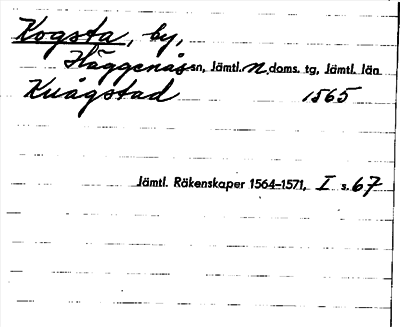 Kogsta, by,
Häggenås sn, Jämtl. N. doms. tg, Jämtl. län
Kuågstad 1565
Jämtl. Räkenskaper 1564–1571, I s. 67